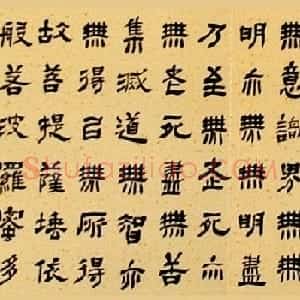 無意識界無無
明亦無無明盡
乃至無老死亦
無老死盡無苦
集滅道無智亦
無得以無所得
故菩提薩埵依
般若波羅蜜多